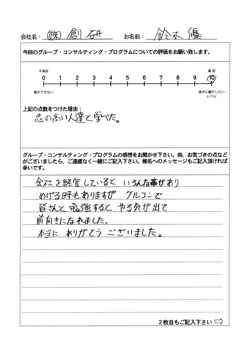 会社名： ㈱ 創研 お名前： 鈴木 優
今回のグループ・コンサルティング・プログラムについての評価をお願い致します。
0 1 2 3 4 5 6 7 8 9 10
上記の点数をつけた理由：
志の高い人達と学べた。
グループ・コンサルティング・プログラムの感想をお聞かせ下さい。尚、お気づきの点など
がございましたら、ご遠慮なくご一緒にご記入下さい。椎名へのメッセージもご記入頂ければ
幸いです。
会社を経営していると いろんな事があり
めげる時もありますが グルコンで
皆さんと勉強すると やる気が出て
前向きになれました。
本当に ありがとう ございました。
2枚目もご記入下さい